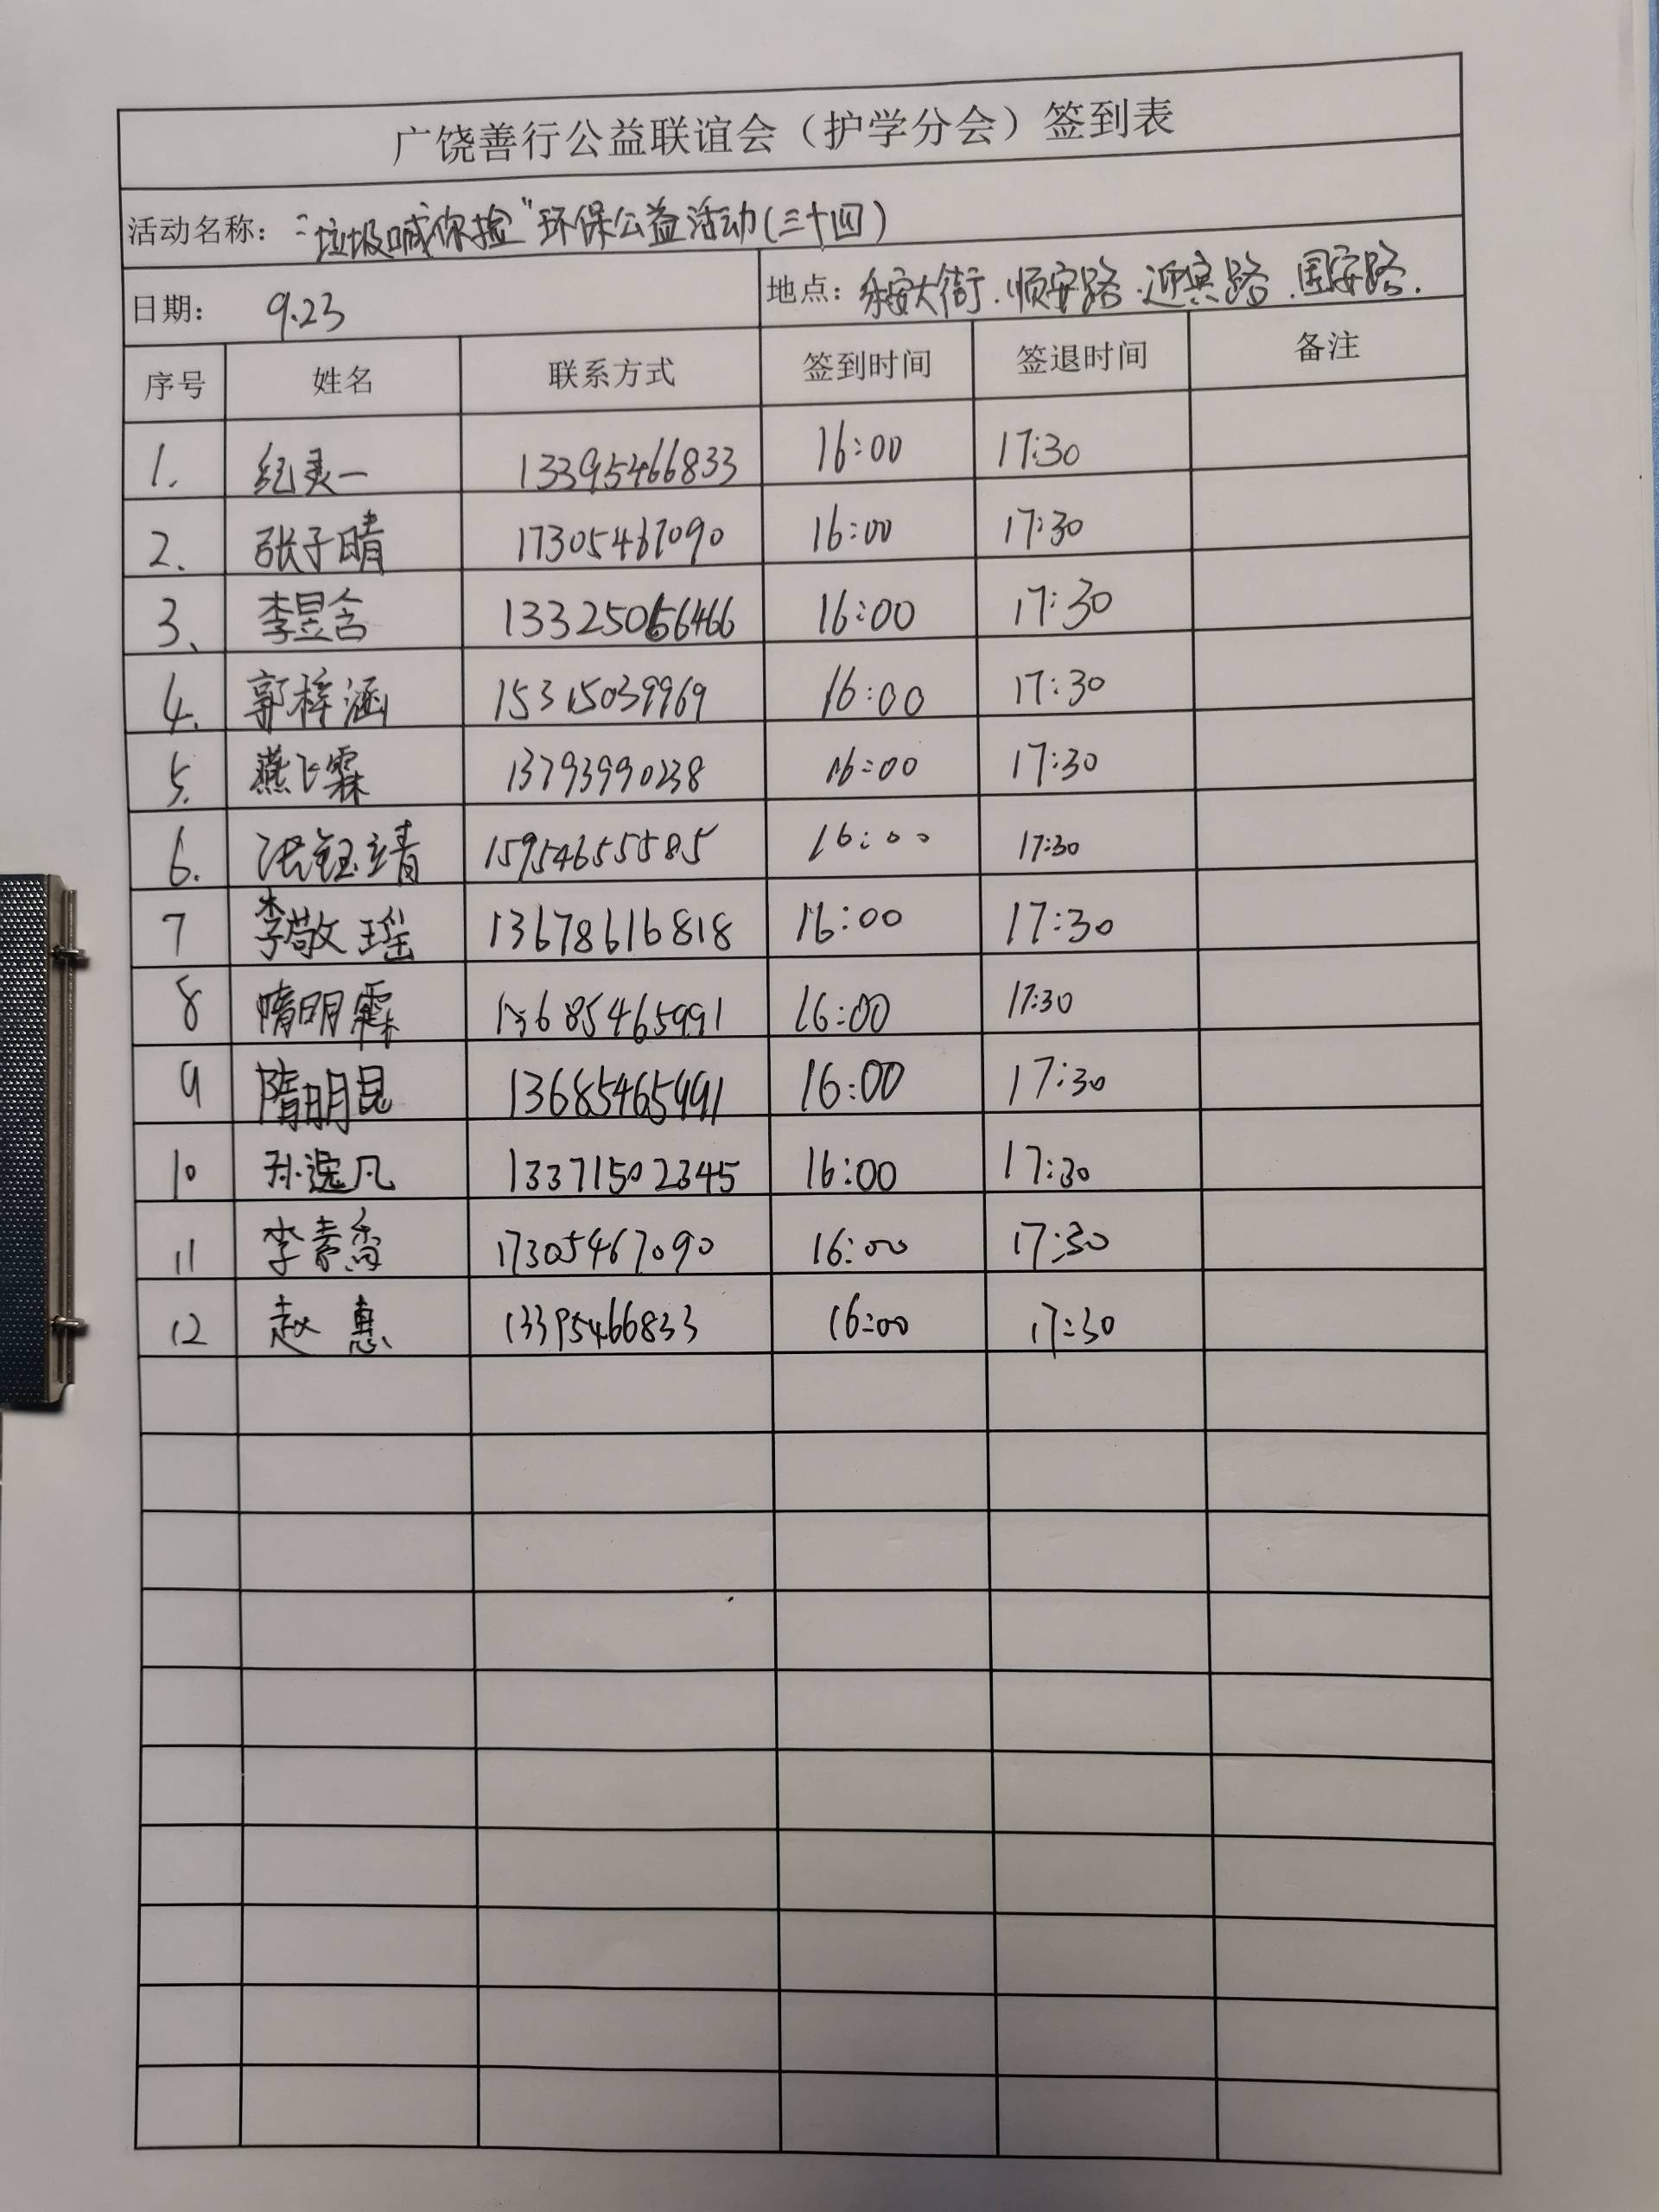 广饶善行公益联谊会（护学分会）签到表
活动名称：“垃圾喊你捡”环保公益活动(三十四)
日期： 9.23 地点：乐安大街.顺安路.迎宾路.国安路.
序号 姓名 联系方式 签到时间 签退时间 备注
1. 纪美一 13395466833 16:00 17:30
2. 张子晴 17305467090 16:00 17:30
3. 李昱含 13325056466 16:00 17:30
4. 郭梓涵 15315039969 16:00 17:30
5. 燕飞霖 13793990238 16:00 17:30
6. 张钰靖 15954655585 16:00 17:30
7 李敬瑶 13678616818 16:00 17:30
8 隋明霖 13685465991 16:00 17:30
9 隋明昆 13685465991 16:00 17:30
10 孙逸凡 13371502345 16:00 17:30
11 李素香 17305467090 16:00 17:30
12 赵惠 13395466833 16:00 17:30